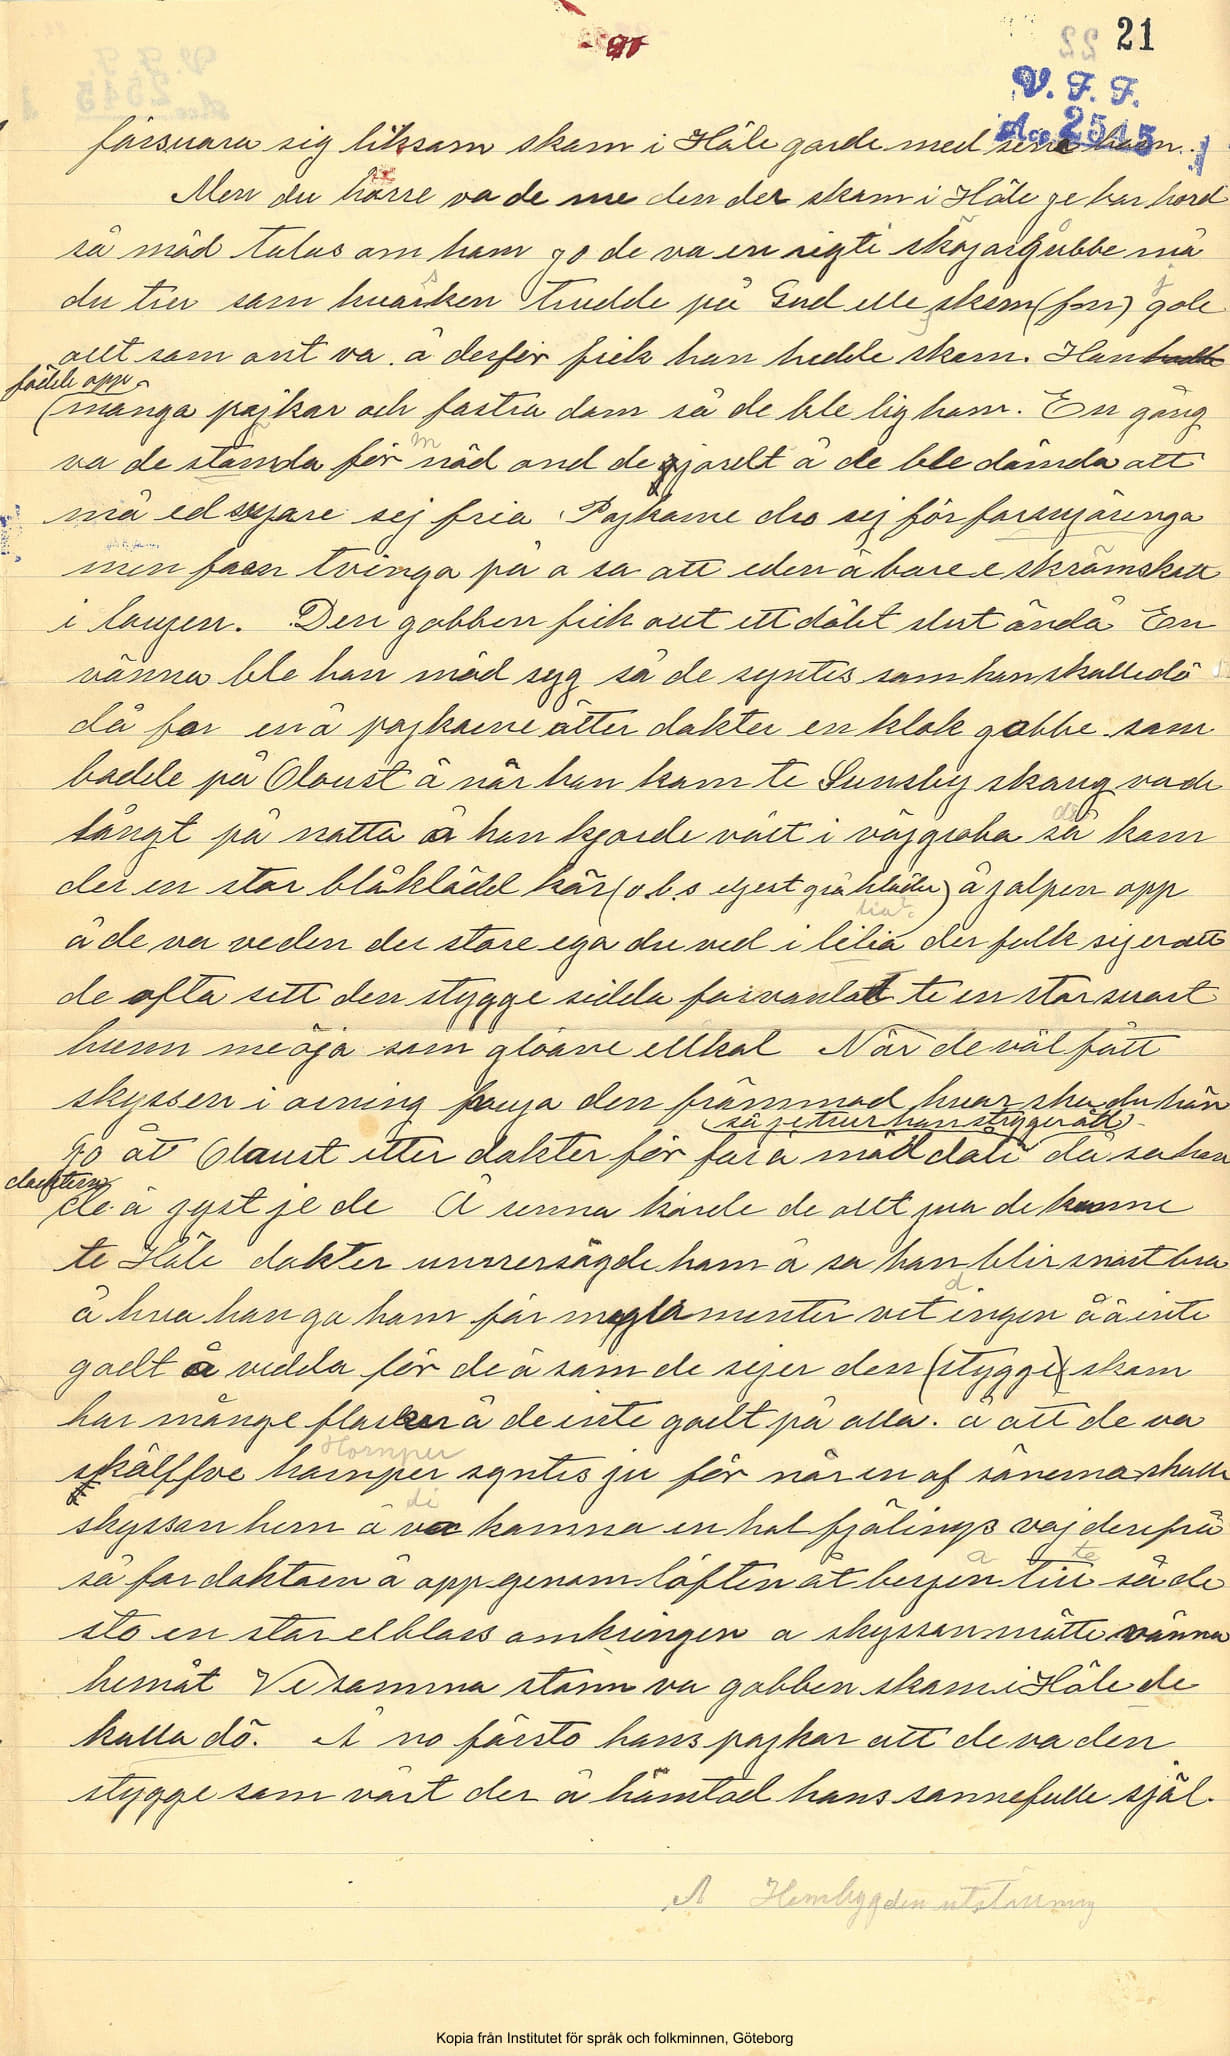 21
22
V. F. F.
Acc 2515
försvara sig liksom skam i Håle gorde med sine barn.
Men du hörre va de me den der skam i Håle je har hord
så möd talas om ham jo de va en rigti sköjargubbe må
du tru som hvarken trudde på Gud elle skam (fan) gole
allt som ont va. å derför fick han hedde skam. Han
födde opp
många pojkar och fostra dom så de ble lig ham. En gång
va de stämda för möd ond de gjordt å de ble dömda att
må ed svjare sej fria. Pojkarne dro sej för forsvjärenga
men faen tvinga på a sa att eden ä bare e skrämskott
i laujen. Den gobben fick ett döligt slut ändå En
vänna ble han möd syg så de syntis som han skulle dö
då for en å pojkarne åtter dokter en klok gobbe som
bodde på Olaust å når han kom te Sunsby skaug va de
långt på natta å han kjorde vårt i vägg­roba så kom
der en stor blåklädd kar (o.b.s eljest grå kläder) å jalpen opp
å de va veden der store ega du ved i lilia der folk sijer att
de ofta sett den stygge sidda forvanlat te en stor svart
hunn me öja som glöane ellkol När de väl fått
skyssen i orning frauja den främmad hvar ska du hän
(så je trur han stygger ätt)
Jo åt Olaust etter dokter för far a möd dali då sa han
doktern
de ä jyst je de Å senna körde de allt hva de kunne
te Håle dokter unnersögde ham å sa han blir snart bra
å hva han ga ham får meglamenter vet ingen å ä inte
godt å vedda för de ä som de sejer den (stygge) skam
har månge flasker å de inte godt på alla. å att de va
skälffve hornper syntis ju för når en af sönerna skulle
Hornper
skyssan hem å va komna en hal fjälings vaj derifrå
di
så for doktorn å opp genom löften åt berjen till så de
sto en stor elbloss omkringen a skyssan måtte vänna
hemåt Ve samma stonn va gobben skam i Håle de
kalla dö. A no försto hans pojkar att de va den
stygge som vårt der å hämtad hans sannefulle själ.
A Hembygden utställning
Kopia från Institutet för språk och folkminnen, Göteborg